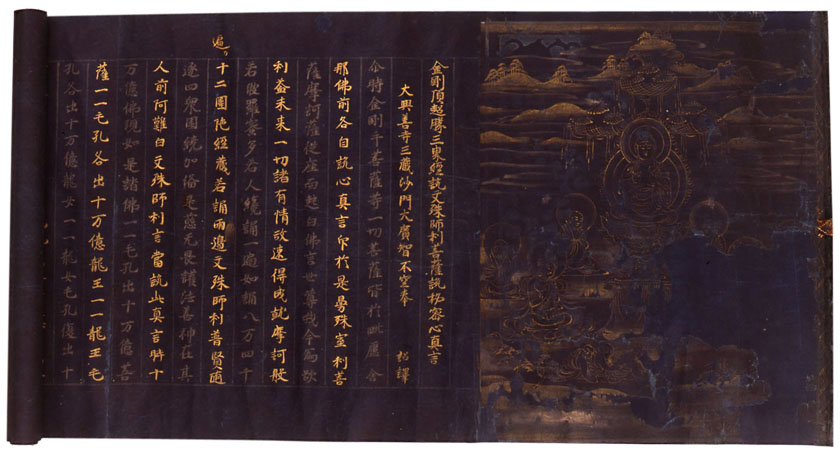 金剛頂超勝三界經說文殊師利菩薩說秘密心真言
大興善寺三藏沙門大廣智不空奉　詔譯
尒時金剛手菩薩等一切菩薩皆於毗盧舍
那佛前各自說心真言印於是曼殊室利菩
薩摩訶薩從座而起白佛言世尊我今為欲
利益未來一切諸有情故速得成就摩訶般
若波羅蜜多若人纔誦一遍如誦八万四千
遍
十二圍陀經藏若誦兩遍文殊師利普賢隨
逐四衆圍繞加備是慈无畏護法善神在其
人前阿難白文殊師利言當說此真言時十
万億佛現如是諸佛一一毛孔出十万億菩
薩一一毛孔各出十万億龍王一一龍王毛
孔各出十万億龍女一一龍女毛孔復出十